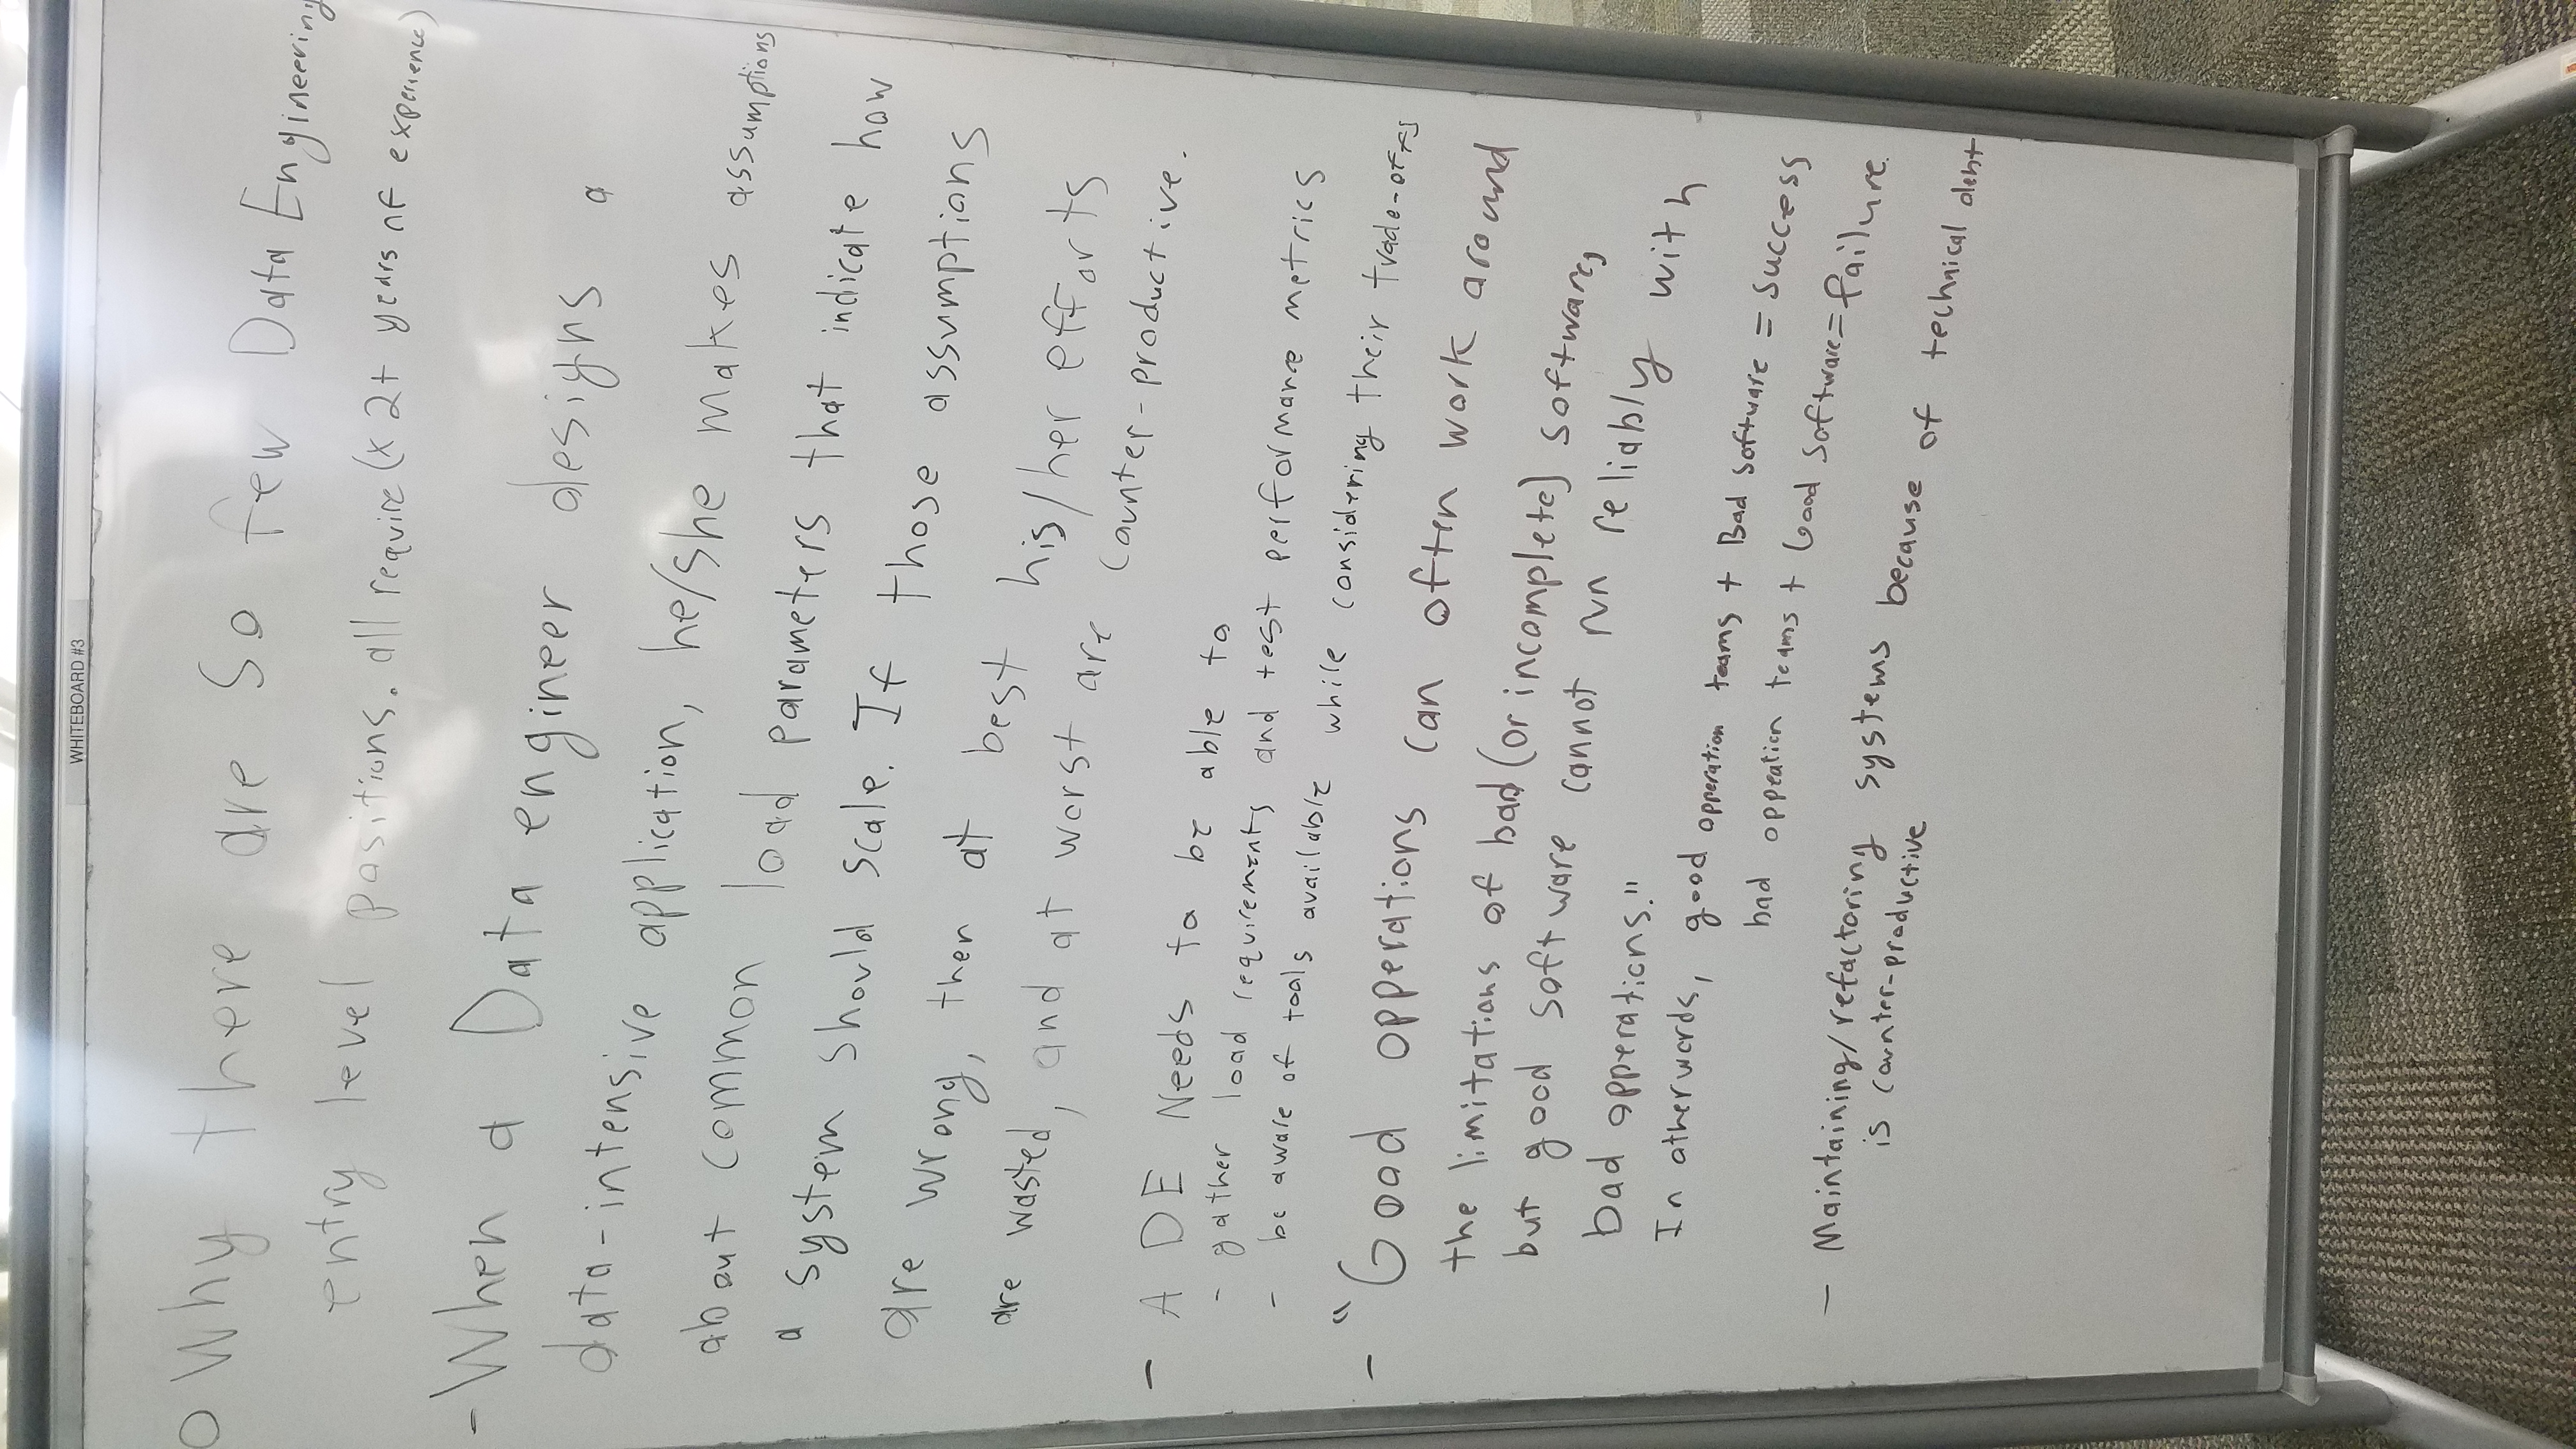 WHITEBOARD #3
o Why there are so few Data Engineering
entry level positions. all require (x 2+ years of experience)
- When a Data engineer designs a
data-intensive application, he/she makes assumptions
about common load parameters that indicate how
a system should scale. If those assumptions
are wrong, then at best his/her efforts
are wasted, and at worst are counter-productive.
- A DE Needs to be able to
- gather load requirements and test performance metrics
- be aware of tools available while considering their trade-offs
- "Good opperations can often work around
the limitations of bad (or incomplete) software,
but good software cannot run reliably with
bad opperations."
In otherwords, good opperation teams + Bad software = success
bad oppeation teams + Good software = failure.
- Maintaining/refactoring systems because of technical debt
is counter-productive